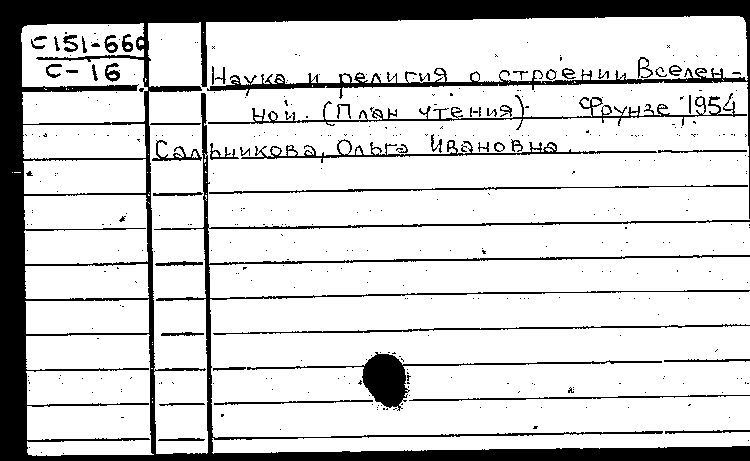 С151-660
С-16
Наука и религия о строении Вселен-
ной. (План чтения). Фрунзе, 1954
Сальникова, Ольга Ивановна.